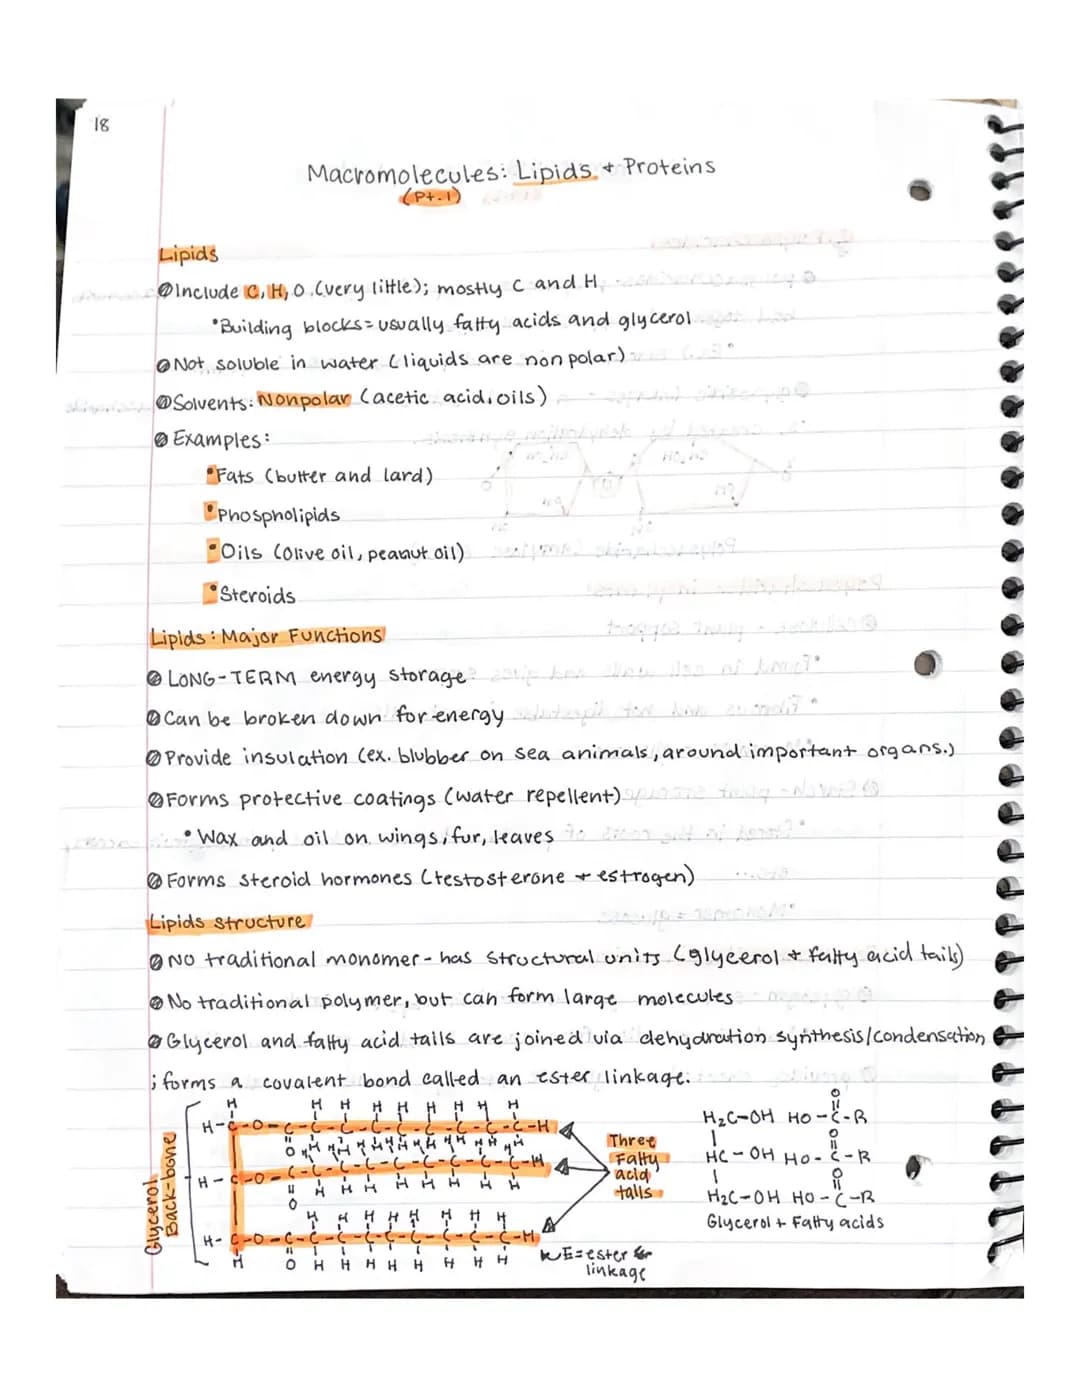 18
Macromolecules: Lipids + Proteins
(Pt.1)
Lipids
Include C, H, O (very little); mostly C and H
•Building blocks = usually fatty acids and glycerol
Not soluble in water (liquids are non polar)
Solvents: Nonpolar (acetic acid, oils)
Examples:
•Fats (butter and lard)
•Phospholipids
•Oils (Olive oil, peanut oil)
•Steroids
Lipids: Major Functions
LONG-TERM energy storage
Can be broken down for energy
Provide insulation (ex. blubber on sea animals, around important organs.)
Forms protective coatings (water repellent)
• Wax and oil on wings, fur, leaves
Forms steroid hormones (testosterone + estrogen)
Lipids structure
NO traditional monomer - has structural units (glycerol + fatty acid tails)
No traditional polymer, but can form large molecules
Glycerol and fatty acid tails are joined via dehydration synthesis/condensation
; forms a covalent bond called an ester linkage.
Glycerol
Back-bone
H H H H H H H H H
H-C-O-C-C-C-C-C-C-C-C-C-H
H-C-O-C-C-C-C-C-C-C-C-C-H
O H H H H H H H H
H H H H H H H H
H-C-O-C-C-C-C-C-C-C-C-C-H
H O H H H H H H H H
Three
Fatty
acid
tails
E=ester
linkage
O
H₂C-OH HO-C-R
O
HC-OH HO-C-R
O
H₂C-OH HO-C-R
Glycerol + Fatty acids